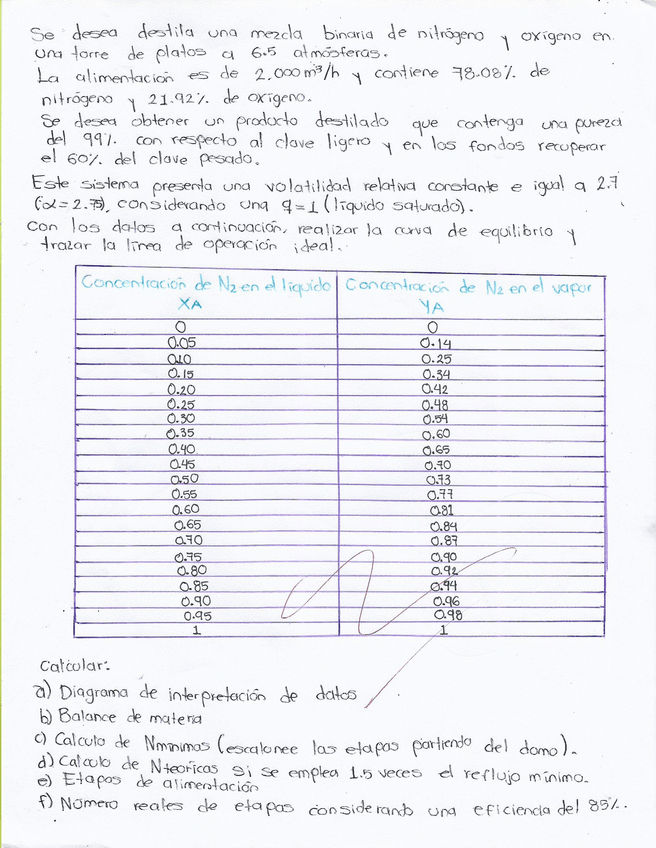 Se desea destila una mezcla binaria de nitrógeno y oxígeno en
una torre de platos a 6.5 atmósferas.
La alimentación es de 2,000 m³/h y contiene 78.08% de
nitrógeno y 21.92% de oxígeno.
Se desea obtener un producto destilado que contenga una pureza
del 99% con respecto al clave ligero y en los fondos recuperar
el 60% del clave pesado.
Este sistema presenta una volatilidad relativa constante e igual a 2.7
(α=2.75), considerando una q=1 (líquido saturado).
Con los datos a continuación, realizar la curva de equilibrio y
trazar la línea de operación ideal.
Concentración de N2 en el líquido XA Concentración de N2 en el vapor YA
0 0
0.05 0.14
0.10 0.25
0.15 0.34
0.20 0.42
0.25 0.48
0.30 0.54
0.35 0.60
0.40 0.65
0.45 0.70
0.50 0.73
0.55 0.77
0.60 0.81
0.65 0.84
0.70 0.87
0.75 0.90
0.80 0.92
0.85 0.94
0.90 0.96
0.95 0.98
1 1
Calcular:
a) Diagrama de interpretación de datos
b) Balance de materia
c) Calculo de Nmínimas (escalonee las etapas partiendo del domo).
d) Calculo de Nteóricas si se emplea 1.5 veces el reflujo mínimo.
e) Etapas de alimentación
f) Número reales de etapas considerando una eficiencia del 85%.